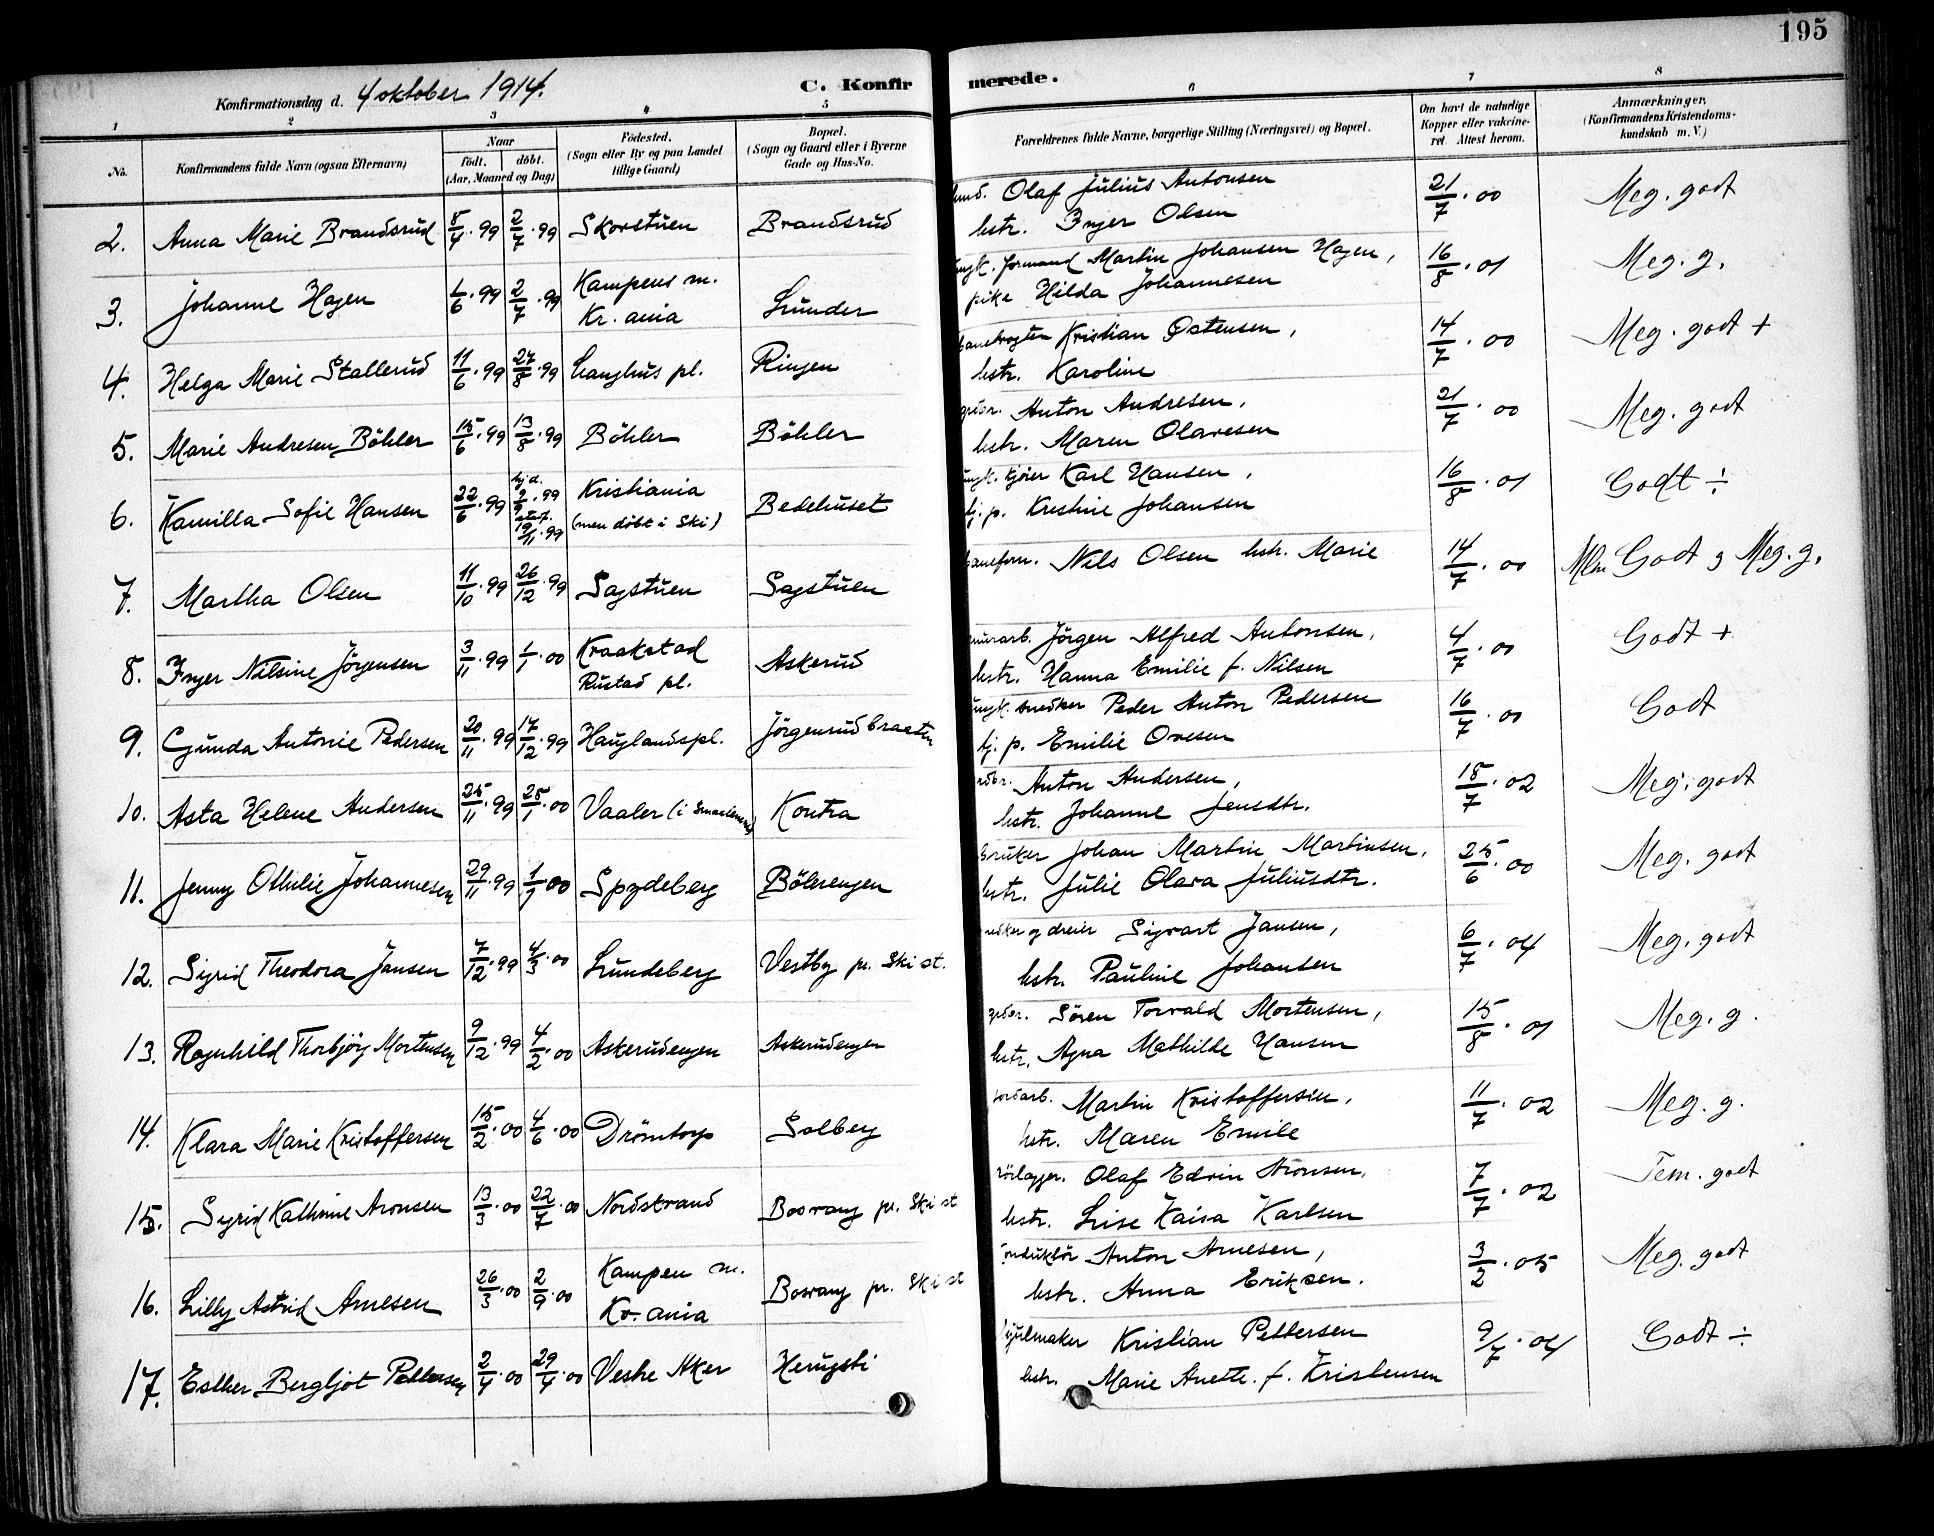 195
Konfirmationsdag d. 4 oktober 1914.
C. Konfirmerede.
1 2 3 4 5 6 7 8
No.
Konfirmandens fulde Navn (ogsaa Efternavn)
Naar
født. døbt.
(Aar, Maaned og Dag)
Fødested.
(Sogn eller By og paa Landet
tillige Gaard)
Bopæl.
(Sogn og Gaard eller i Byerne
Gade og Hus-No.
Forældrenes fulde Navne, borgerlige Stilling (Næringsvei) og Bopæl.
Om havt de naturlige
Kopper eller vakcine-
ret Attest herom.
Anmærkninger,
(Konfirmandens Kristendoms-
kundskab m. V.)
2. Anna Marie Brandsrud 8/4·99 2/7·99 Skorstuen Brandsrud
Olaf Julius Antonsen
hstr. Inger Olsen
21/7·00 Meg. godt
3. Johanne Hagen 1/6·99 2/7·99 Kampens m.
Kr. ania Lunder
ungk. formand Martin Johansen Hagen,
pike Hilda Johannesen
16/8·01 Meg. g.
4. Helga Marie Stallerud 11/6·99 27/8·99 Langhus pl. Ringen
Kristian Østensen,
hstr. Karoline
14/7·00 Meg. godt +
5. Marie Andresen Bøhler 15/6·99 13/8·99 Bøhler Bøhler
Anton Andresen,
hstr. Maren Olavesen
21/7·00 Meg. godt
6. Kamilla Sofie Hansen 22/6·99 hjd. 2/9·99 stadf. 19/11·99 Kristiania
(men døbt i Ski) Bedehuset
ungk. kjører Karl Hansen,
tj. p. Kristine Johansen
16/8·01 Godt ÷
7. Martha Olsen 11/10·99 26/12·99 Sagstuen Sagstuen
baneform. Nils Olsen hstr. Marie
14/7·00 Mlm Godt og Meg. g.
8. Inger Nilsine Jørgensen 3/11·99 1/1·00 Kraakstad
Rustad pl. Askerud
murarb. Jørgen Alfred Antonsen,
hstr. Hanna Emilie f. Nilsen
4/7·00 Godt +
9. Gunda Antonie Pedersen 20/11·99 17/12·99 Hauglandspl. Jørgensrudbraaten
ungk. snedker Peder Anton Pedersen
tj. p. Emilie Ovesen
16/7·00 Godt
10. Asta Helene Andersen 25/11·99 28/1·00 Vaaler (i Smaalenene) Kontra
Anton Andersen,
hstr. Johanne Jensdtr.
18/7·02 Meg. godt
11. Jenny Othilie Johannesen 29/11·99 1/1·00 Spydeberg Bølerengen
bruker Johan Martin Martinsen,
hstr. Julie Olava Juliusdtr.
25/6·00 Meg. godt
12. Sigrid Theodora Jansen 7/12·99 4/3·00 Lundeberg Vestby pr. Ski st.
snedker og dreier Sigvart Jansen,
hstr. Pauline Johansen
6/7·04 Meg. godt
13. Ragnhild Thorbjørg Mortensen 9/12·99 4/2·00 Askerudengen Askerudengen
grdbr. Søren Torvald Mortensen,
hstr. Agna Mathilde Hansen
15/8·01 Meg. g.
14. Klara Marie Kristoffersen 15/2·00 4/6·00 Drømtorp Solberg
jordarb. Martin Kristoffersen,
hstr. Maren Emile
11/7·02 Meg. g.
15. Sigrid Kathrine Aronsen 13/3·00 22/7·00 Nordstrand Bosvang pr. Ski st
rørlægger. Olaf Edvin Aronsen,
hstr. Lise Kaisa Karlsen
7/7·02 Tem. godt
16. Lilly Astrid Arnesen 26/3·00 2/9·00 Kampen m.
Kr. ania Bosvang pr. Ski st
konduktør Anton Arnesen,
hstr. Anna Eriksen.
3/2·05 Meg. godt
17. Esther Bergljot Pettersen 2/4·00 29/4·00 Vestre Aker Herugsti
hjulmaker Kristian Pettersen
hstr. Marie Anette. f. Kristensen
9/7·04 Godt ÷